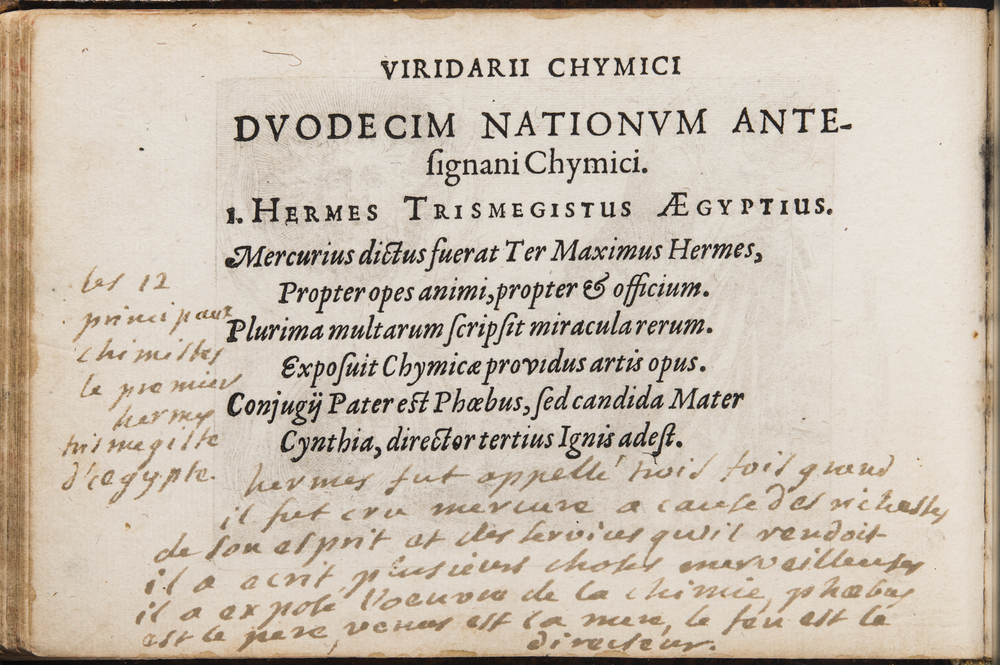 VIRIDARII CHYMICI
DVODECIM NATIONVM ANTE-
ſignani Chymici.
1. HERMES TRISMEGISTUS ÆGYPTIUS.
Mercurius dictus fuerat Ter Maximus Hermes,
Propter opes animi, propter & officium.
Plurima multarum ſcripſit miracula rerum.
Expoſuit Chymicæ providus artis opus.
Conjugĳ Pater eſt Phœbus, ſed candida Mater
Cynthia, director tertius Ignis adeſt.
les 12
principaux
chimistes
le premier
hermes
trismegiste
d'œgypte.
hermes fut appellé trois fois grand
il fut cru mercure a cause des richesses
de son esprit et des services qu'il rendoit
il a ecrit plusieurs choses merveilleuses
il a exposé l'oeuvre de la chimie, phœbus
est le pere, venus est la mere, le feu est le
directeur.